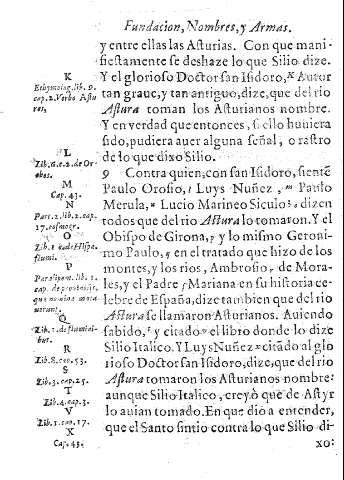 Fundacion, Nombres, y Armas.
y entre ellas las Asturias. Con que mani-
fiestamente se deshaze lo que Silio dize.
Y el glorioso Doctor san Isidoro, K Autor
tan graue, y tan antiguo, dize, que del rio
Astura toman los Asturianos nombre.
Y en verdad que entonces, si ello huuiera
sido, pudiera auer alguna señal, o rastro
de lo que dixo Silio.
9 Contra quien, con san Isidoro, sienten
Paulo Orosio, l Luys Nuñez, m Paulo
Merula, n Lucio Marineo Siculo; dizen
todos que del rio Astura lo tomaron. Y el
Obispo de Girona, p y lo mismo Geroni-
mo Paulo, en el tratado que hizo de los
montes, y los rios, Ambrosio, r de Mora-
les, y el Padre s Mariana en su historia ce-
lebre de España, dize tambien que del rio
Astura se llamaron Asturianos. Auiendo
sabido, t y citado el libro donde lo dize
Silio Italico. Y Luys Nuñez x citādo al glo
rioso Doctor san Isidoro, dize, que del rio
Astura tomaron los Asturianos nombre:
aunque Silio Italico, creyò que de Astyr
lo auian tomado. En que dió a entender,
que el Santo sintio contra lo que Silio di-
xo:
K
Ethymolog. lib. 9.
cap. 2. Verbo Astu
res,
L
Lib. 6. c. 2. de Or-
bes.
M
Cap. 43.
N
Part. 2. lib. 2. cap.
17. cosmogr.
O
Lib. 1 de Hispa.
flumi.
P
Paralipom. lib. 1.
cap.
que nomina mota
uerunt.
Q
Lib. 1. de flumini-
bus.
R
Lib. 8. cap. 53.
S
Lib. 3. cap. 25.
T
Lib. 4. cap. 3.
V
Lib. 1. cap. 17.
X
Cap. 43.